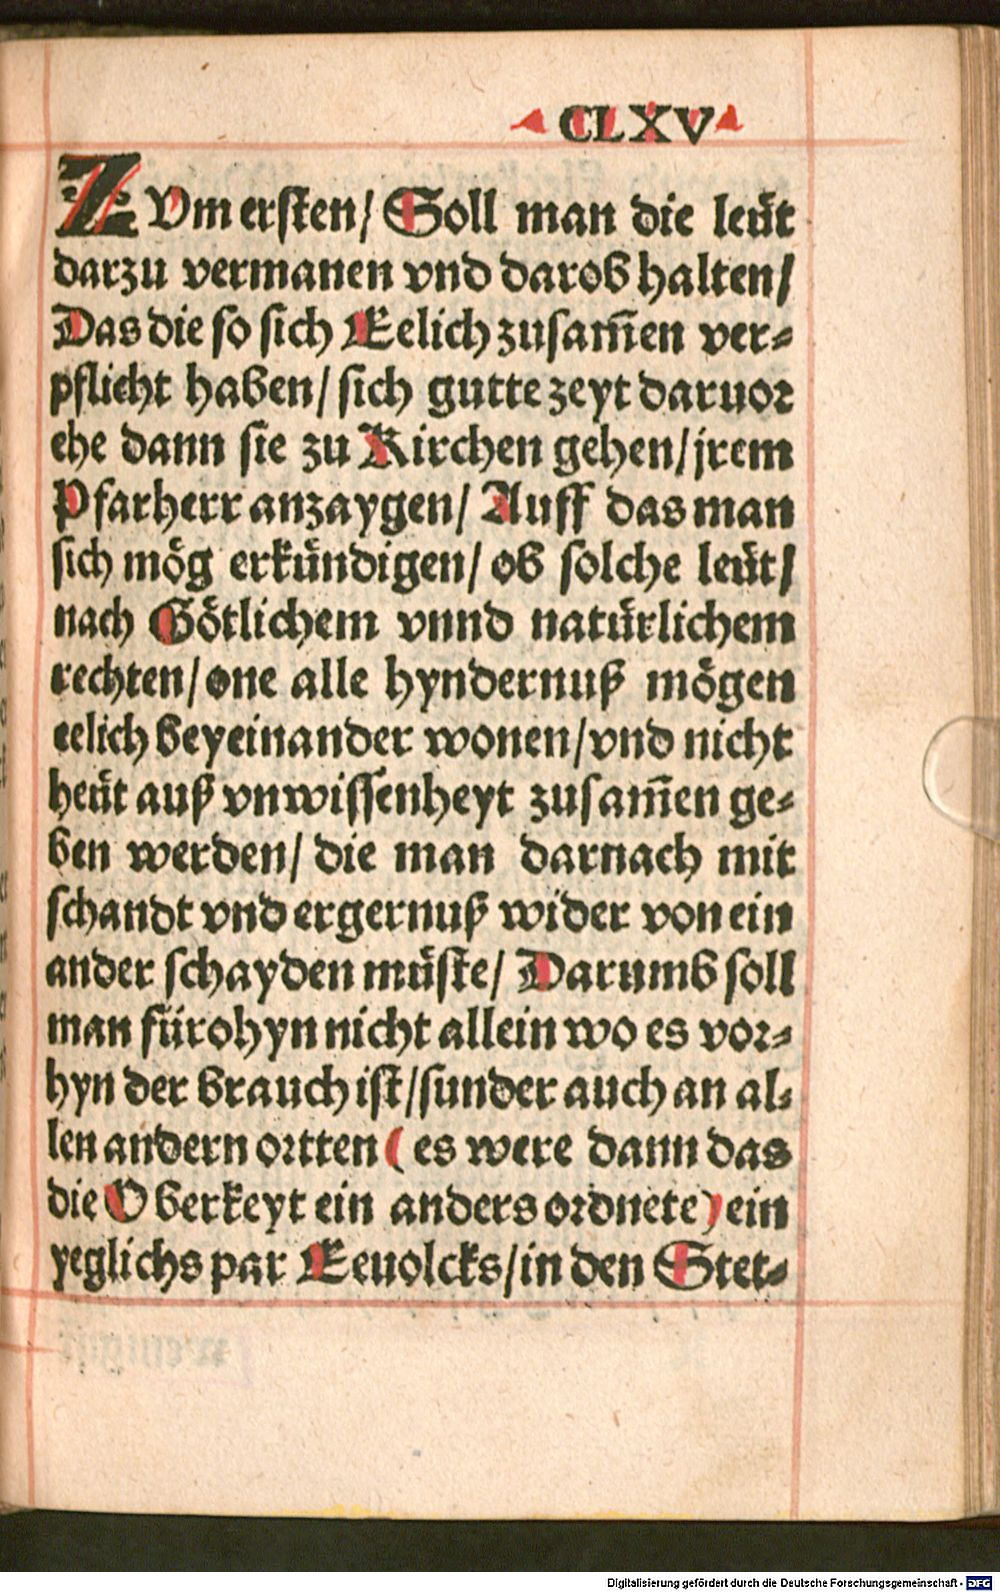 CLXV
ZVm ersten/ Soll man die leüt
darzu vermanen vnd darob halten/
Das die so sich Eelich zusam̄en ver-
pflicht haben/ sich gutte zeyt daruor
ehe dann sie zu Kirchen gehen/ jrem
Pfarherr anzaygen/ Auff das man
sich mög erkündigen/ ob solche leüt/
nach Götlichem vnnd natürlichem
rechten/ one alle hyndernuß mögen
eelich beyeinander wonen/ vnd nicht
heüt auß vnwissenheyt zusam̄en ge-
ben werden/ die man darnach mit
schandt vnd ergernuß wider von ein
ander schayden müste/ Darumb soll
man fürohyn nicht allein wo es vor-
hyn der brauch ist/ sunder auch an al-
len andern ortten (es were dann das
die Oberkeyt ein anders ordnete) ein
yeglichs par Eeuolcks/ in den Stet-
Digitalisierung gefördert durch die Deutsche Forschungsgemeinschaft - DFG